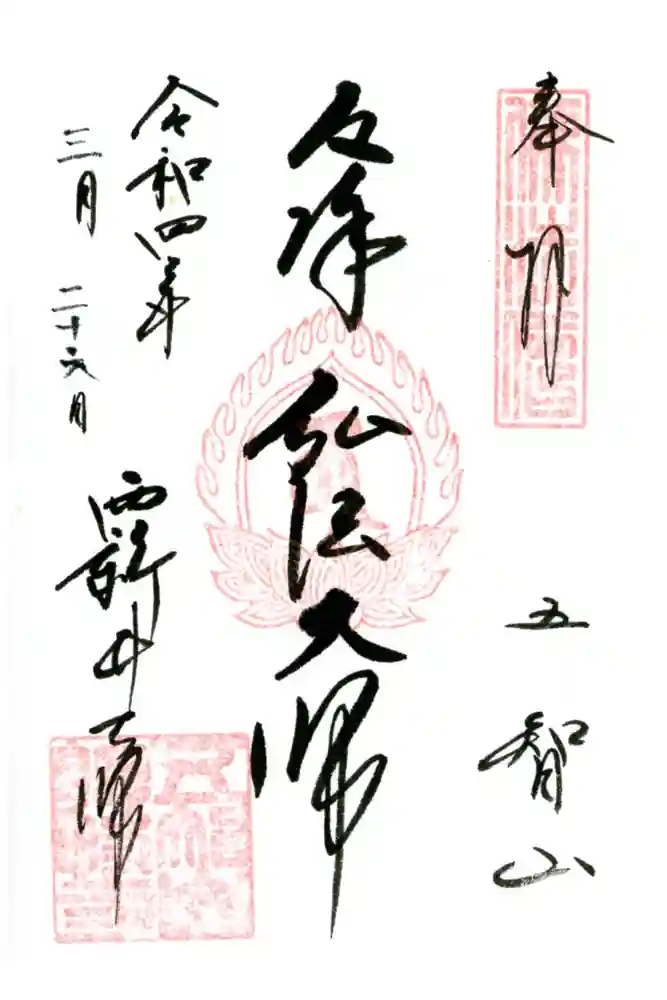 奉拝
五智山
厄除
弘法大師
令和四年
三月二十六日
西新井大師